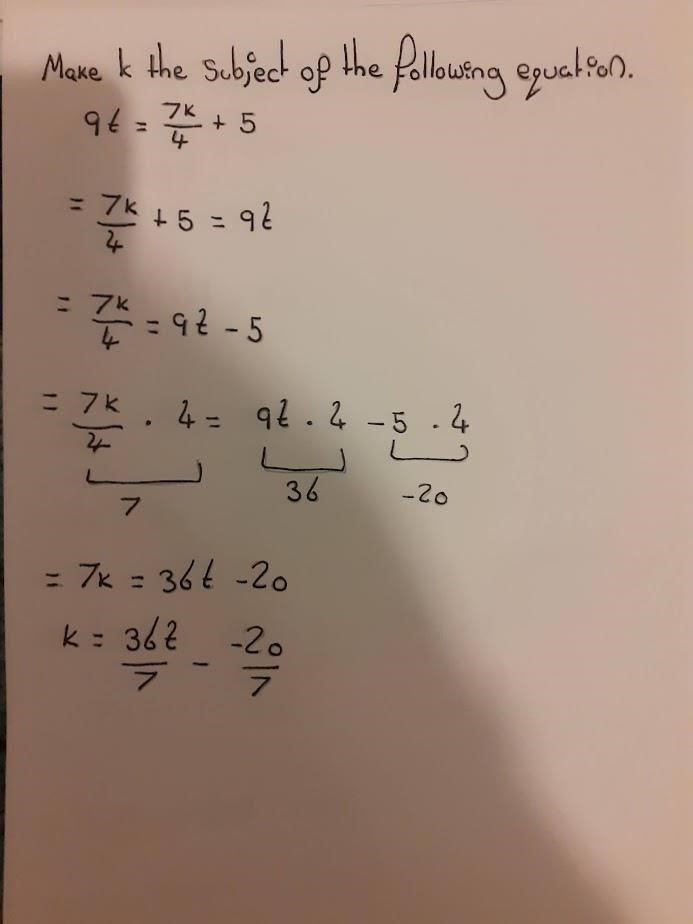 Make k the subject of the following equation.
9t = 7k/4 + 5
= 7k/4 + 5 = 9t
= 7k/4 = 9t - 5
= 7k/4 · 4 = 9t · 4 - 5 · 4
7 36 -20
= 7k = 36t - 20
k = 36t/7 - -20/7